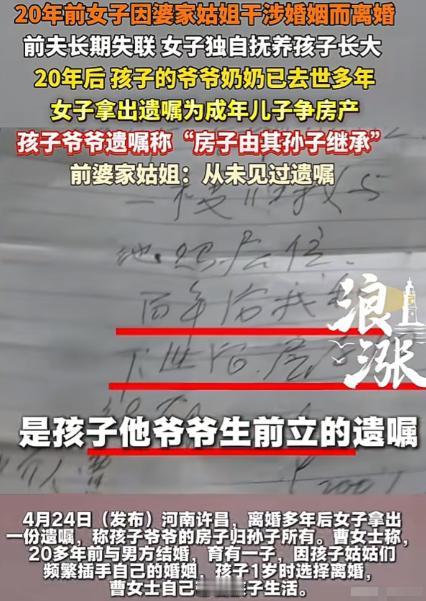 20年前女子因婆家姑姐干涉婚姻而离婚
前夫长期失联 女子独自抚养孩子长大
20年后 孩子的爷爷奶奶已去世多年
女子拿出遗嘱为成年儿子争房产
孩子爷爷遗嘱称“房子由其孙子继承”
前婆家姑姐：从未见过遗嘱
百年后我
下世后 房
浪
涨
是孩子他爷爷生前立的遗嘱
4月24日（发布）河南许昌，离婚多年后女子拿出
一份遗嘱，称孩子爷爷的房子归孙子所有。曹女士称，
20多年前与男方结婚，育有一子，因孩子姑姑们
频繁插手自己的婚姻，孩子1岁时选择离婚，
曹女士自己 孩子生活。